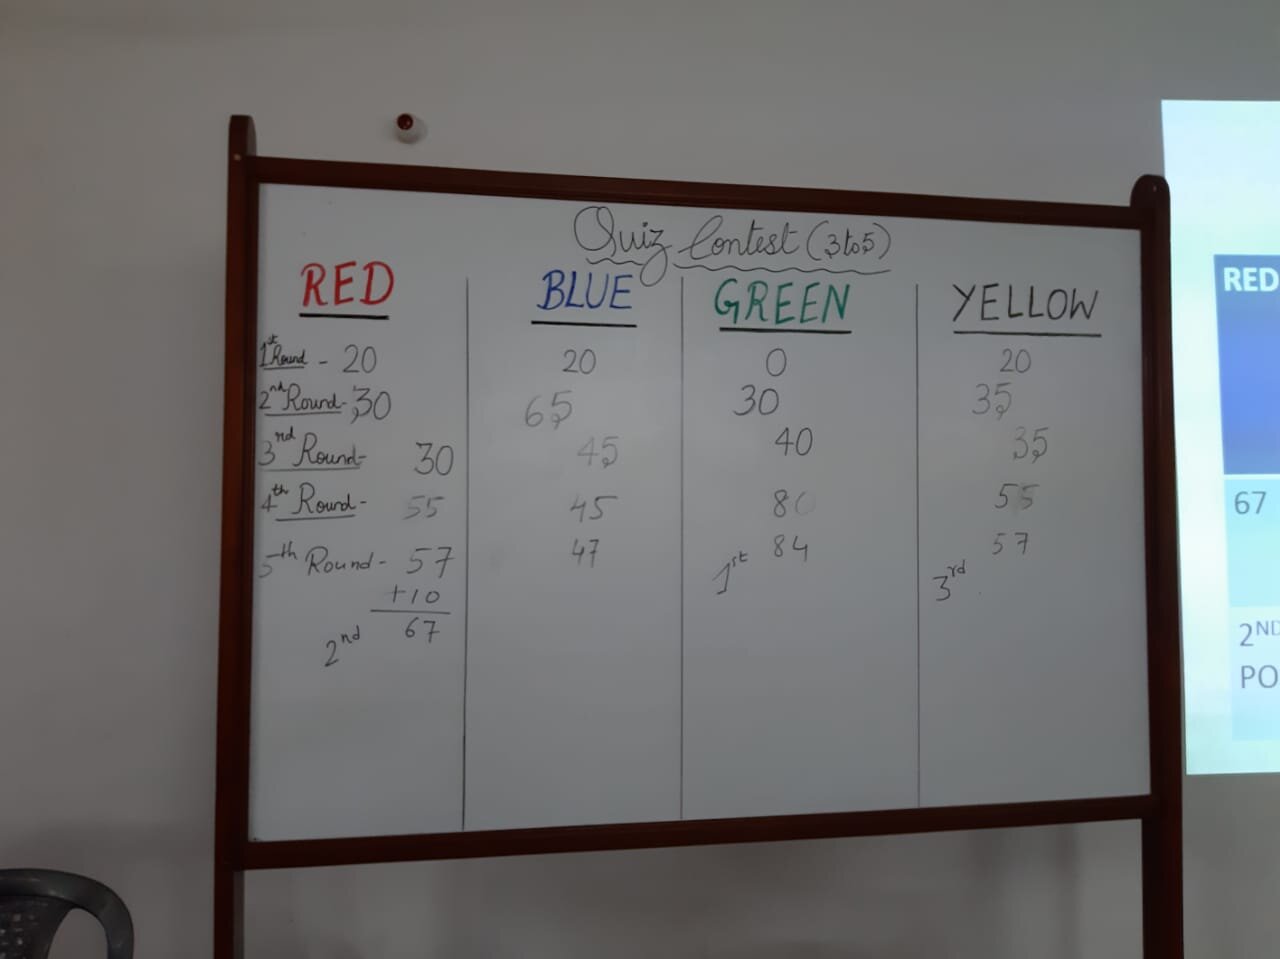 Quiz Contest (3 to 5)
RED BLUE GREEN YELLOW
1st Round - 20 20 0 20
2nd Round - 30 65 30 35
3rd Round - 30 45 40 35
4th Round - 55 45 80 55
5th Round - 57 47 84 57
+10 1st 3rd
67
2nd
RED
67
2ND
PO